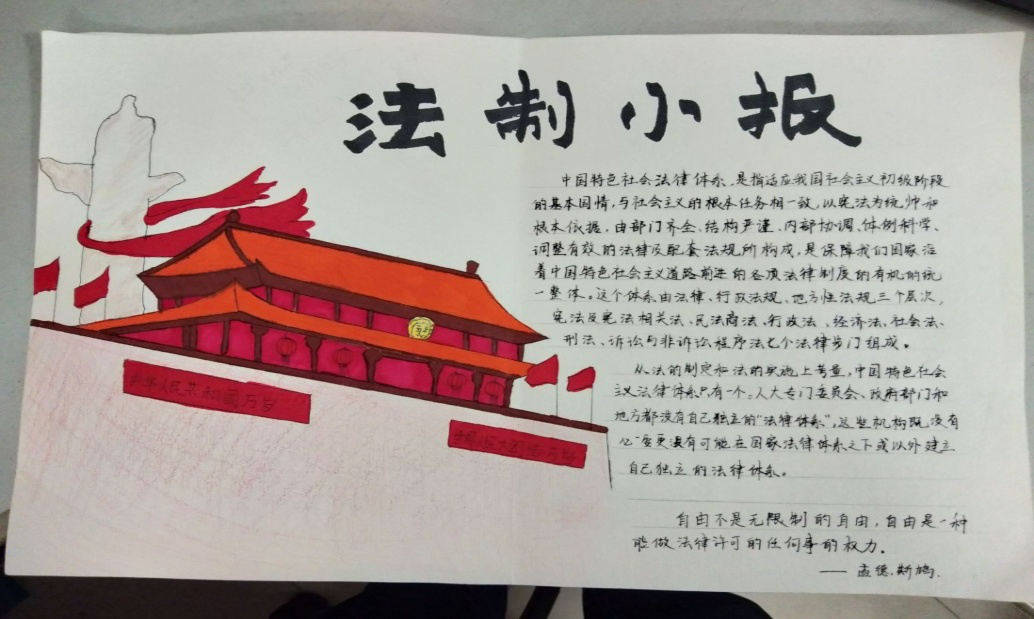 法制小报
中国特色社会法律体系,是指适应我国社会主义初级阶段
的基本国情,与社会主义的根本任务相一致,以宪法为统帅和
根本依据,由部门齐全、结构严谨、内部协调、体例科学、
调整有效的法律及配套法规所构成,是保障我们国家沿
着中国特色社会主义道路前进的各项法律制度的有机的统
一整体。这个体系由法律、行政法规、地方性法规三个层次,
宪法及宪法相关法、民法商法、行政法、经济法、社会法、
刑法、诉讼与非诉讼程序法七个法律部门组成。
从法的制定和法的实施上考量,中国特色社会
主义法律体系只有一个。人大专门委员会、政府部门和
地方都没有自己独立的“法律体系”,这些机构既没有
必要更没有可能在国家法律体系之下或以外建立
自己独立的法律体系。
自由不是无限制的自由,自由是一种
能做法律许可的任何事的权力。
—— 孟德.斯鸠.
中华人民共和国万岁